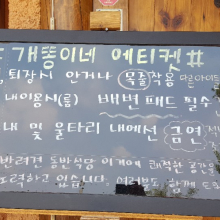 # 개똥이네 에티켓 #
, 퇴장시 안거나 목줄착용
내 이용시(룸) 배변 패드 필수
내 및 울타리 내에선 금연
반려견 동반식당 이기에 쾌적한 공간
노력하고 있습니다. 여러분도 함께 도